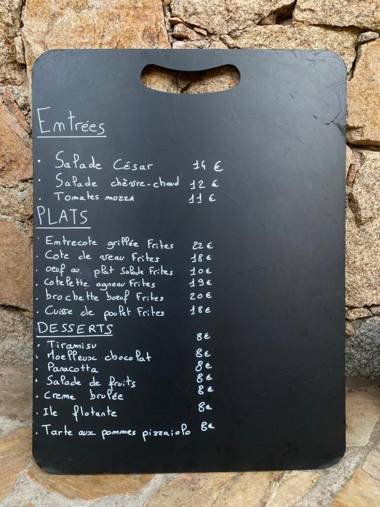 Entrées
. Salade César 14 €
. Salade chèvre-chaud 12 €
. Tomates mozza 11 €
PLATS
. Entrecote grillée Frites 22 €
. Cote de veau Frites 18 €
. oeuf au plat Salade Frites 10 €
. cotelette agneau Frites 19 €
. brochette boeuf Frites 20 €
. Cuisse de poulet Frites 18 €
DESSERTS
. Tiramisu 8 €
. Moelleux chocolat 8 €
. Panacotta 8 €
. Salade de fruits 8 €
. Creme brulée 8 €
. Ile flotante 8 €
. Tarte aux pommes pizzaiolo 8 €